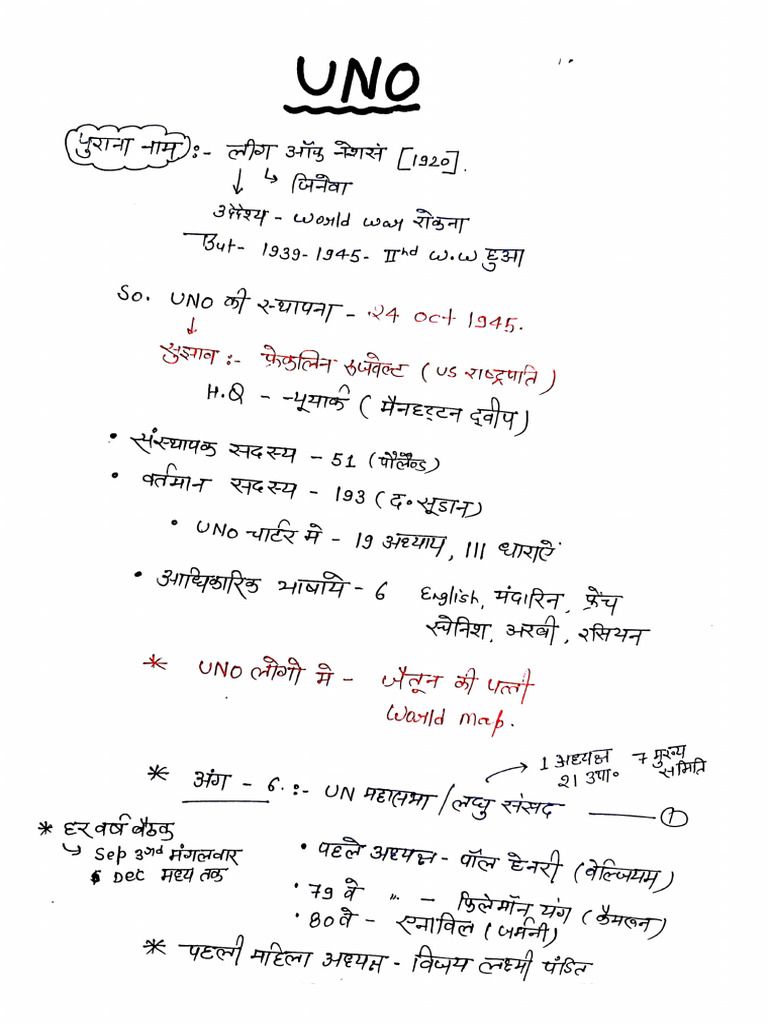 UNO
पुराना नाम :- लीग ऑफ नेशसं [1920].
↳ जिनेवा
उद्देश्य - World war रोकना
But - 1939-1945 - IInd W.W हुआ
So. UNO की स्थापना - 24 Oct 1945.
सुझाव :- फ्रेकलिन रूजवेल्ट (US राष्ट्रपति)
H.Q - न्यूयार्क (मैनहट्टन द्वीप)
• संस्थापक सदस्य - 51 (पौलैण्ड)
• वर्तमान सदस्य - 193 (द॰ सूडान)
• UNO चार्टर मे - 19 अध्याय, 111 धाराऐं
• आधिकारिक भाषाये - 6 English, मंदारिन, फ्रेंच
स्पेनिश, अरबी, रसियन
* UNO लोगो मे - जैतून की पत्ती
World map.
→ 1 अध्यक्ष 7 मुख्य
21 उपा॰ समिति
* अंग - 6. :- UN महासभा / लघु संसद — 1
* हर वर्ष बैठक
↳ Sep 3rd मंगलवार
Dec मध्य तक
• पहले अध्यक्ष - पॉल हेनरी (बेल्जियम)
• 79 वे " - फिलेमॉन यंग (कैमरून)
• 80 वे - एनाविल (जर्मनी)
* पहली महिला अध्यक्ष - विजय लक्ष्मी पंडित